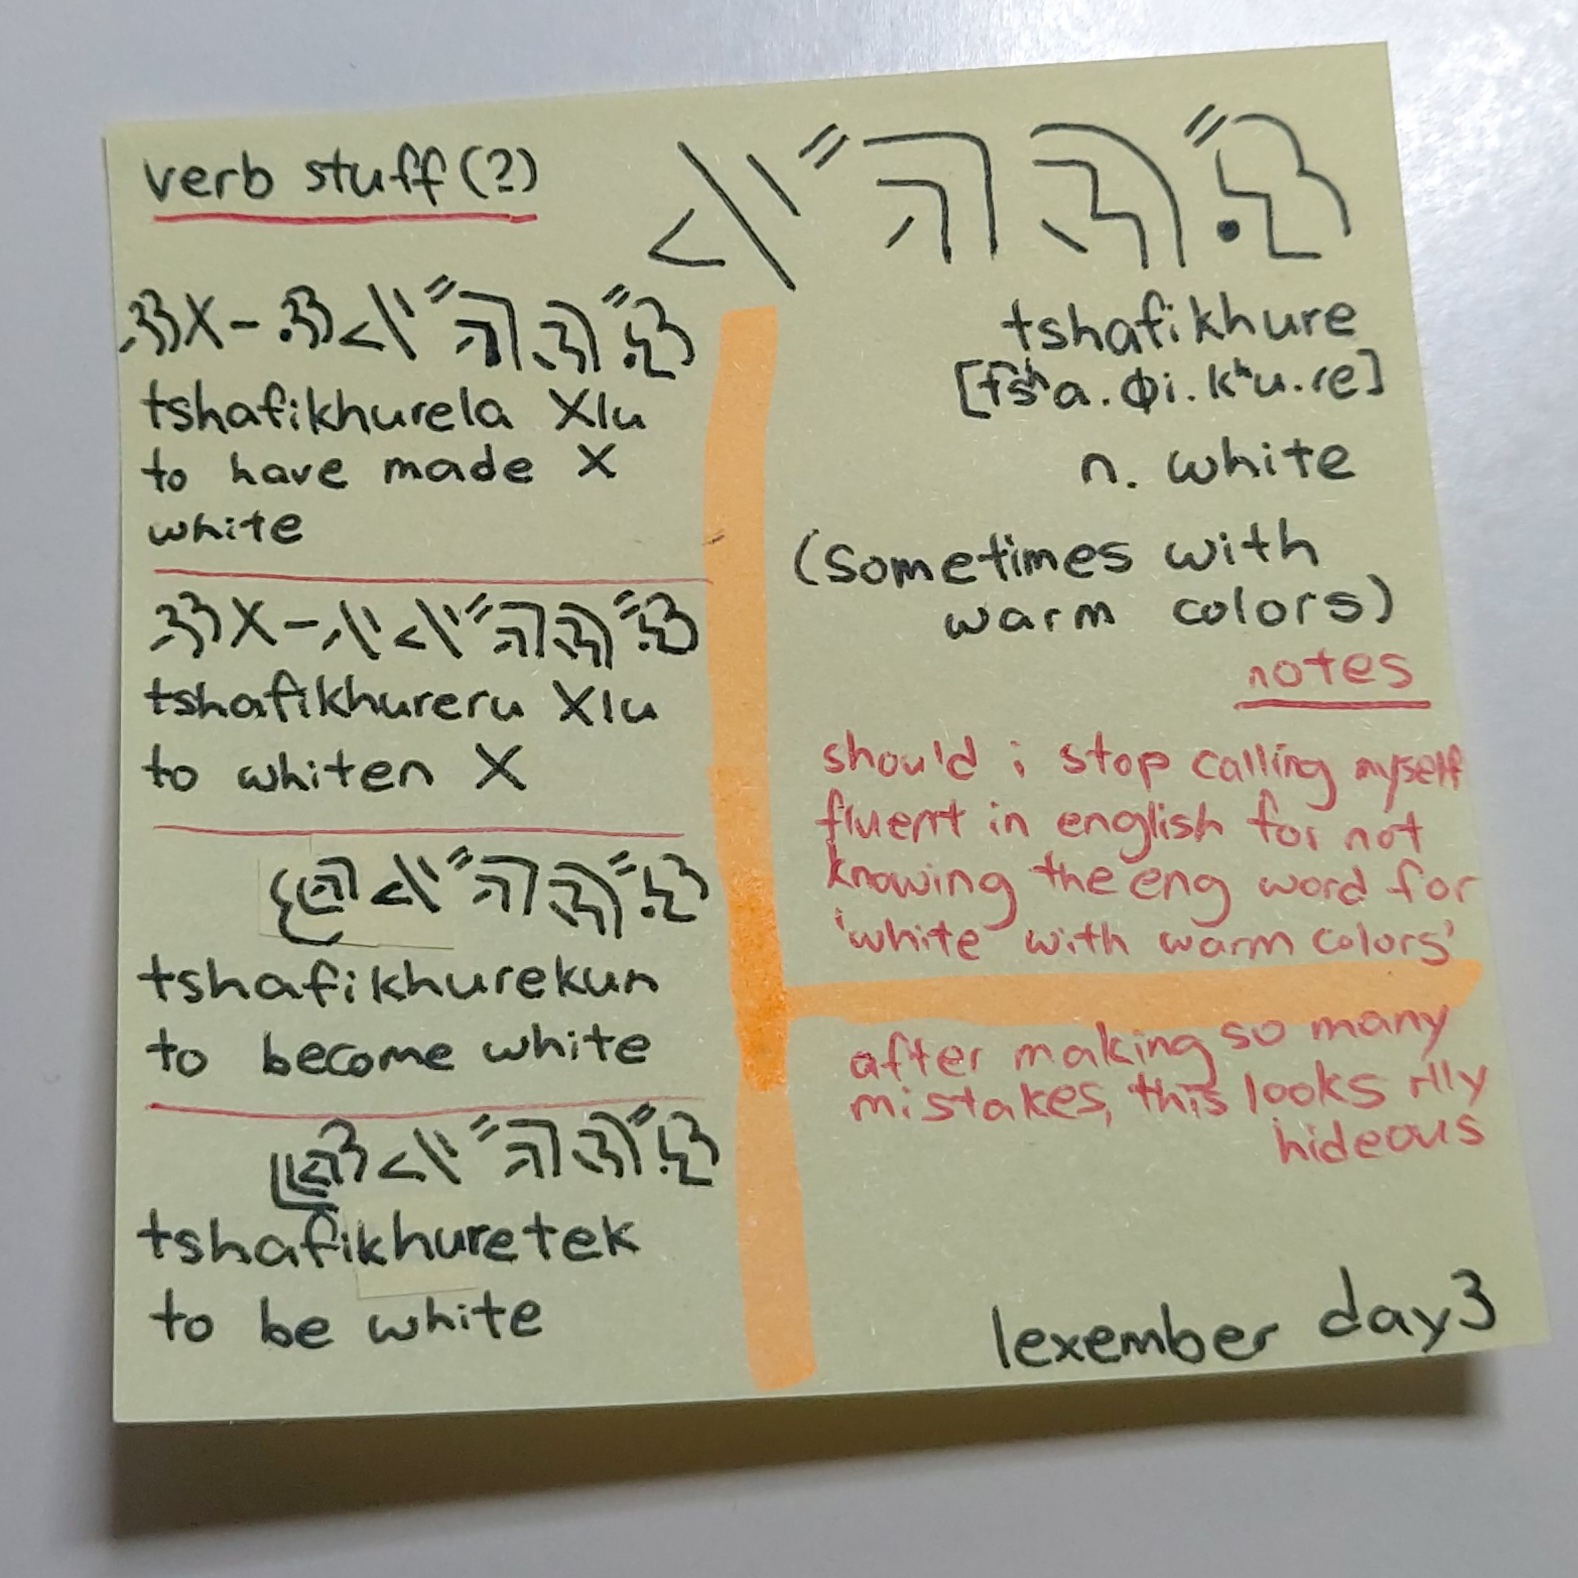 verb stuff(?)
tshafikhurela Xlu
to have made X
white
tshafikhureru Xlu
to whiten X
tshafikhurekun
to become white
tshafikhuretek
to be white
tshafikhure
[t͡sʰa.ɸi.kʰu.re]
n. white
(sometimes with
warm colors)
notes
should i stop calling myself
fluent in english for not
knowing the eng word for
'white with warm colors'
after making so many
mistakes, this looks rlly
hideous
lexember day3